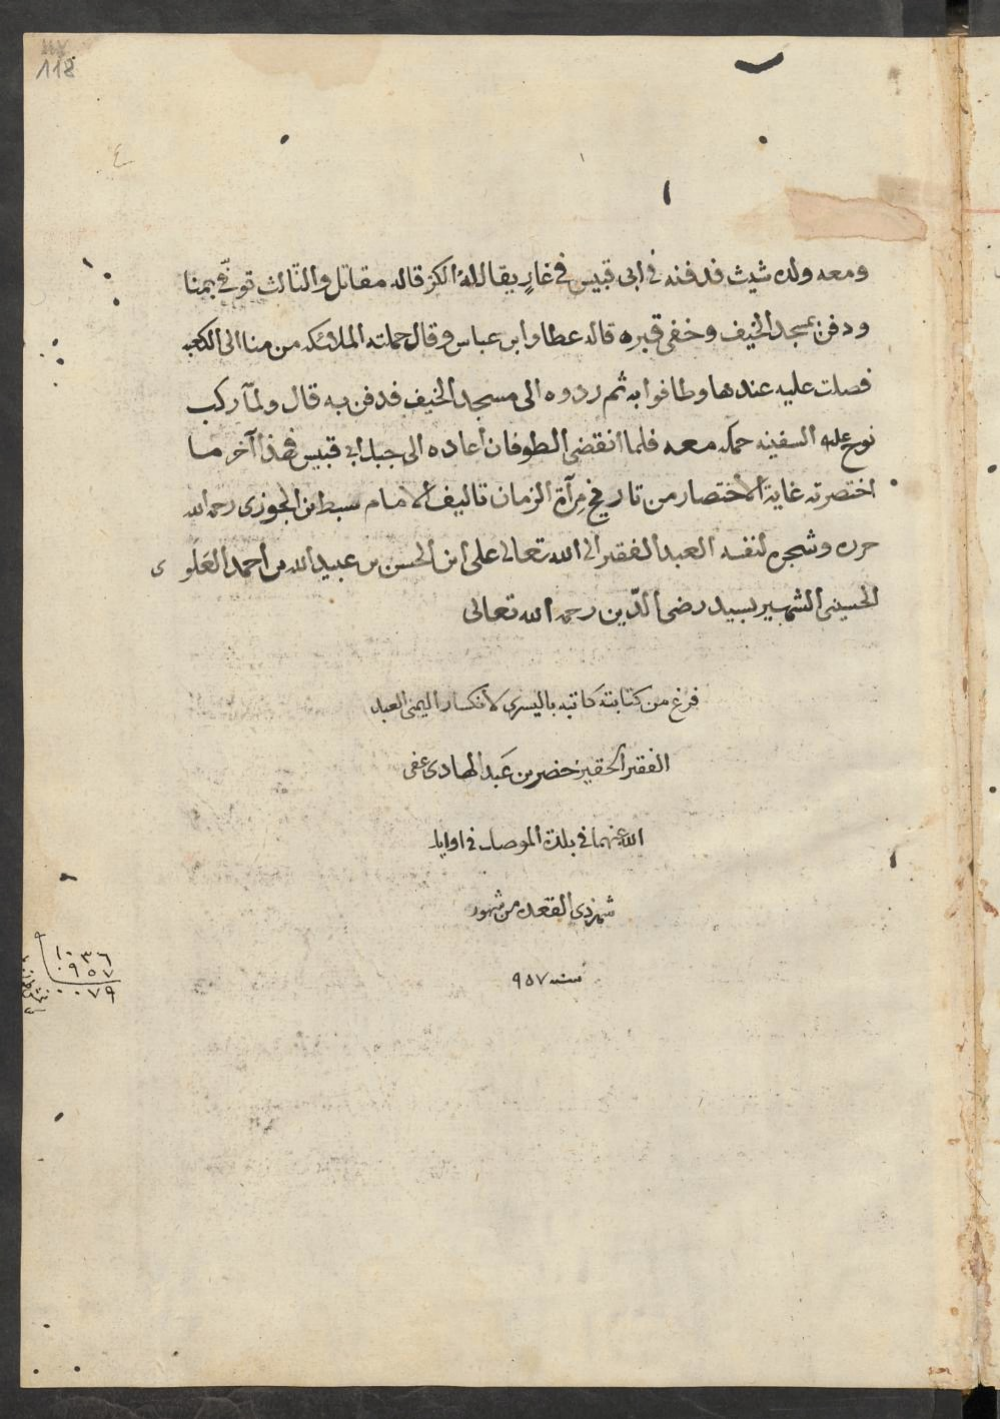 118
٤
ومعه ولده شيث فدفنه في ابى قبيس في غارٍ يقال لهُ الكنز قاله مقاتل والثالث توفّى بمنا
ودفن بمسجد الخيف وخفى قبره قاله عطا وابن عباس وقال حملته الملائكه من منا الى الكعبه
فصلت عليه عندها وطافوا به ثم ردوه الى مسجد الخيف فدفن به قال ولمّا ركب
نوح عليه السفينه حمله معه فلما انقضى الطوفان اعاده الى جبل ابي قبيس فهذا آخر ما
اختصرته غاية الاختصار من تاريخ مِرآة الزمان تاليف الامام سبط ابن الجوزى رحمه الله
حرره وشجره لنفسه العبد الفقير الى الله تعالى على ابن الحسن بن عبيد الله بن احمد العَلوى
الحسينى الشهير بسيد رضى الدّين رحمه الله تعالى
فرغ من كتابته كاتبه باليسرى لانكسار اليمنى العبد
الفقير الحقير خضر بن عَبد الهادى عفى
الله عنهما في بلدة الموصل في اوايل
شهر ذى القعده من شهور
سنه ٩٥٧
١٠٣٦
٩٥٧
٠٠٧٩